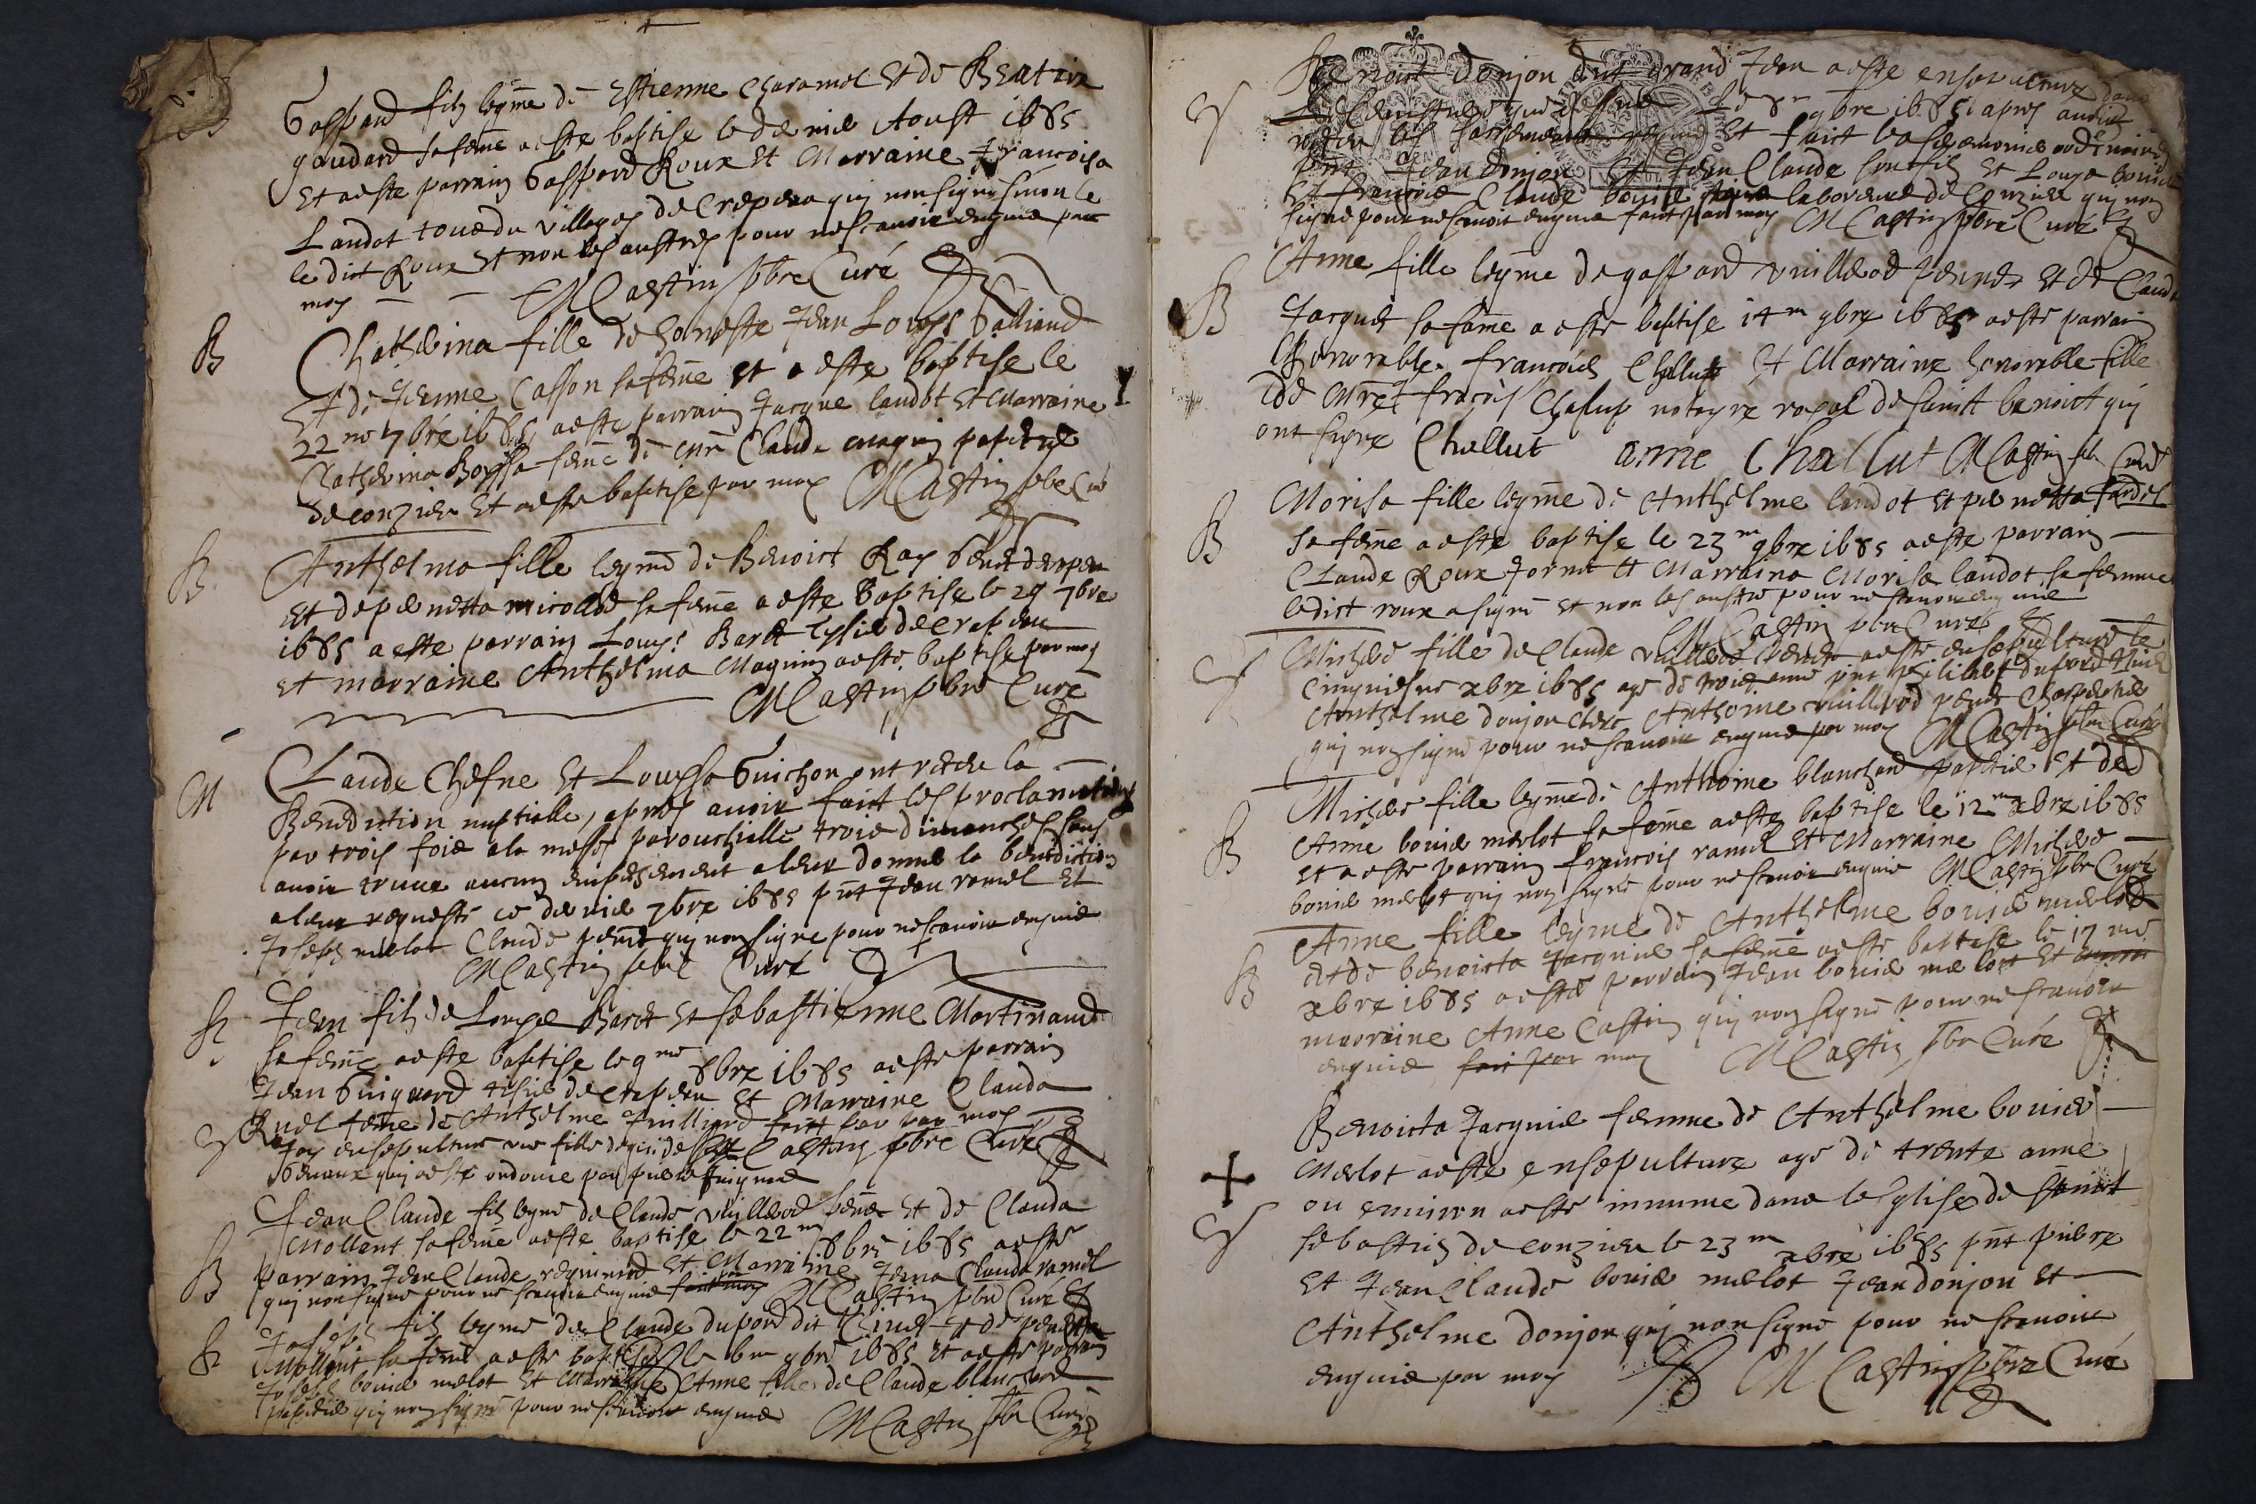 Gaspard filz legme de Estienne Charamel et de Beatrix
goudard sa feme a este baptise le dernie Aoust 1685
et a este parrain Gaspard Roux et Marraine Francoisa
Landot toud du village de Crepeau quy non signe sinon le
le dict Roux et non les austres pour ne scavoir enquie par
moy — — M Castin pbre Curé
B
Chatherina fille de honneste Jean Louys Galliand
et de Jeanne Casson sa feme et a este baptise le
22 me 7bre 1685 a este parrain Jacque landot et Marraine
Chatherina Boyss feme de mre Claude magnin papetie
de conzieu et a este baptise par moy M Castin pbe Cu
B
Anthelma fille legme de Benoict Ray
et de pernetta micollet sa feme a este Baptise le 29 7bre
1685 a este parrain Louys Barct de Crapeau
et marraine Anthelma Magnin a este baptise par moy
M Castin pbre Curé
M
Claude Chesne et Louyssa Guichon ont receu la
Benediction nuptialle, apres avoir faict les proclamations
par trois fois a la messe parouchialle trois dimanches sans
avoir treuve aucun empeschement a leur donne la benediction
a leur requeste ce dernie 7bre 1685 pnt Jean ramel et
Joseph melot Claude quy non signe pour ne scavoir enquie
M Castin pbre Curé
B
Jean filz de Louys Barct et sebastienne Martinand
sa feme a este baptise le 9me 8bre 1685 a este parrain
Jean Guignard tisie de Crapeau et Marraine Clauda
Ruel feme de Anthelme Juilliard faict par moy
Jay ensepulture une fille M Castin pbre Curé
quy a este ondoiee par
Jean Claude filz legme de Claude Vuillerod et de Clauda
Mollent sa feme a este baptise le 22me 8bre 1685 a este
B
parrain Jean Claude et Marraine Jeana Clauda ramel
quy non signe pour ne scavoir enquie par moy M Castin pbre Curé
B
Joseph filz legme de Claude dupord dit et de pernetta
Mollent sa feme a este baptise le 6me 9bre 1685 et a este parrain
Joseph bouvie melot et Marraine Anne fille de Claude blanchard
papetie quy non signe pour ne scavoir enquie M Castin pbr Curé
Benoict Donjon dut grand Jean a este ensepulture dans
le 8me 9bre 1685 apres avoir
receu les sacrements et faict les ceremonies ordinaires
pnt Jean Donjon et Jean Claude son filz et Louys bouvie
et francois Claude bouvie laboreurs de Conzieu quy non
signe pour ne scavoir enquie faict par moy M Castin pbre Curé
B
Anne fille legme de gaspard vuillerod et de Clauda
Jacquie sa fame a este baptise 14me 9bre 1685 a este parrain
Honorable francois Challut et Marraine honorable fille
de mre francois Chalut notayre royal de sainct benoict quy
ont signe Challut anne Challut M Castin pbr Curé
B
Morisa fille legme de Anthelme landot et pernetta fardel
sa feme a este baptise le 23me 9bre 1685 a este parrain
Claude Roux et Marraina Morisa landot sa femme
ledict roux a signe et non les austre pour ne scavoir enquie
M Castin pbr Curé
Michee fille de Claude vuillerod a este ensepulture le
cinquiesme xbre 1685 age de trois anne pnt
Anthelme donjon clerc Anthoine vuillerod Charpentie
quy non signe pour ne scavoir enquie par moy M Castin pbr Curé
B
Michee fille legme de Anthoine blanchard papetie et de
Anne bouvie merlot sa feme a este baptise le 12me xbre 1685
et a este parrain francois ramel et Marraine Michee
bouvie merlot quy non signe pour ne scavoir enquie M Castin pbr Curé
B
Anne fille legme de Anthelme bouvie merlot
et de benoicta Jacquie sa feme a este baptise le 17 me
xbre 1685 a este parrain Jean bouvie merlot et
marraine Anne Castin quy non signe pour ne scavoir
enquie fait par moy M Castin pbr Curé
Benoicta Jacquie femme de Anthelme bouvie
Merlot a este ensepulture age de trente anne
ou environ a este innume dans leglise de sainct
sebastien de conzieu le 23me xbre 1685 pnt pierre
et Jean Claude bouvie merlot Jean donjon et
Anthelme donjon quy non signe pour ne scavoir
enquie par moy M Castin pbre Curé